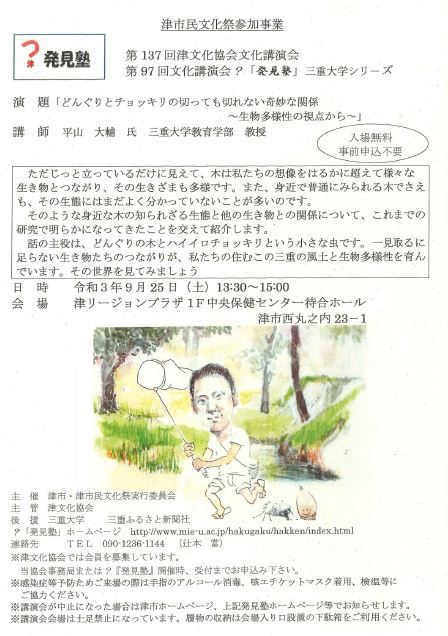 津市民文化祭参加事業
つ?津 発見塾
第137回津文化協会文化講演会
第97回文化講演会?「発見塾」三重大学シリーズ
演 題「どんぐりとチョッキリの切っても切れない奇妙な関係
～生物多様性の視点から～」
講 師 平山 大輔 氏 三重大学教育学部 教授
入場無料
事前申込不要
ただじっと立っているだけに見えて、木は私たちの想像をはるかに超えて様々な
生き物とつながり、その生きざまも多様です。また、身近で普通にみられる木でさえ
も、その生態にはまだよく分かっていないことが多いのです。
そのような身近な木の知られざる生態と他の生き物との関係について、これまでの
研究で明らかになってきたことを交えて紹介します。
話の主役は、どんぐりの木とハイイロチョッキリという小さな虫です。一見取るに
足らない生き物たちのつながりが、私たちの住むこの三重の風土と生物多様性を育ん
でいます。その世界を見てみましょう
日 時 令和3年9月25日（土）13:30～15:00
会 場 津リージョンプラザ1F中央保健センター待合ホール
津市西丸之内23－1
主 催 津市・津市民文化祭実行委員会
主 管 津文化協会
後 援 三重大学 三重ふるさと新聞社
?「発見塾」ホームページ http://www.mie-u.ac.jp/hakugaku/hakken/index.html
連絡先 TEL 090-1236-1144 （辻本 當）
※津文化協会では会員を募集しています。
当協会事務局または?『発見塾』開催時、受付までお申込み下さい。
※感染症等予防ためご来場の際は手指のアルコール消毒、咳エチケットマスク着用、検温等に
ご協力ください。
※講演会が中止になった場合は津市ホームページ、上記発見塾ホームページ等でお知らせします。
※講演会会場は土足禁止になっています。履物の収納は会場入り口設置の下駄箱をご利用ください。